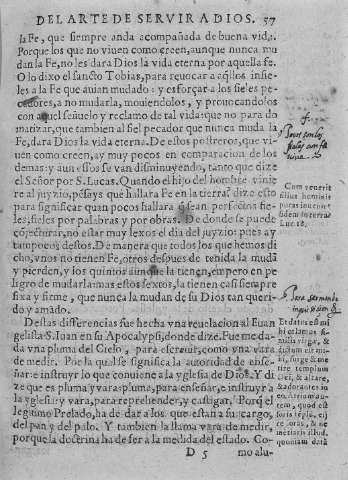 DEL ARTE DE SERVIR A DIOS. 57
la Fe, que siempre anda acompañada de buena vida.
Porque los que no viuen como creen, aunque nunca mu
dan la Fe, no les dara Dios la vida eterna por aquella fe.
O lo dixo el sancto Tobias, para reuocar a aq̃llos infie-
les a la Fe que auian mudado: y esforçar a los fieles pe-
cadores, a no mudarla, mouiendolos, y prouocandolos
con aquel señuelo y reclamo de tal vida: que no para do
matizar, que tambien al fiel pecador que nunca muda la
Fe, dara Dios la vida eterna. De estos postreros, que vi-
uen como creen, ay muy pocos en comparacion de los
demas: y aun essos se van disminuyendo, tanto que dize
el Señor por S. Lucas. Quando el hijo del hombre vinie
re al juyzio, pẽsays que hallara Fe en la tierra? dize esto
para significar quan pocos hallara q̃ sean perfectos fie-
les, fieles por palabras y por obras. De donde se puede
cõjecturar, no estar muy lexos el dia del juyzio: pues ay
tan pocos destos. De manera que todos los que hemos di
cho, vnos no tienen Fe, otros despues de tenida la mudã
y pierden, y los quintos aunque la tienen, empero en pe
ligro de mudarla: mas estos sextos, la tienen casi siempre
fixa y firme, que nunca la mudan de su Dios tan queri-
do y amado.
Destas differencias fue hecha vna reuelacion al Euan
gelista S. Ioan en su Apocalypsi, donde dize. Fue me da-
da vna pluma del Cielo, para escreuir, como vna vara
de medir. Por la qual se significa la autoridad de ense-
ñar e instruyr lo que conuiene a la yglesia de Dios. Y di
ze que es pluma y vara: pluma, para enseñar, e instruyr a
la yglesia: y vara, para reprehender, y castigar. Porq̃ el
legitimo Prelado, ha de dar a los que estan a su cargo,
del pan y del palo. Y tambien la llama vara de medir,
porque la doctrina ha de ser a la medida del estado. Co-
D 5 mo alu-
Cum venerit
filius hominis
putas inueniet
fidem in terra?
Luc. 18.
Et datus est mi
hi calamus si-
milis virgæ, &
dictum est mi-
hi, surge & me
tire templum
Dei, & altare,
& adorantes in
eo. Atrium au-
tem, quod est
foris templũ, eij
ce foras, & ne
metiaris illud,
quoniam datũ